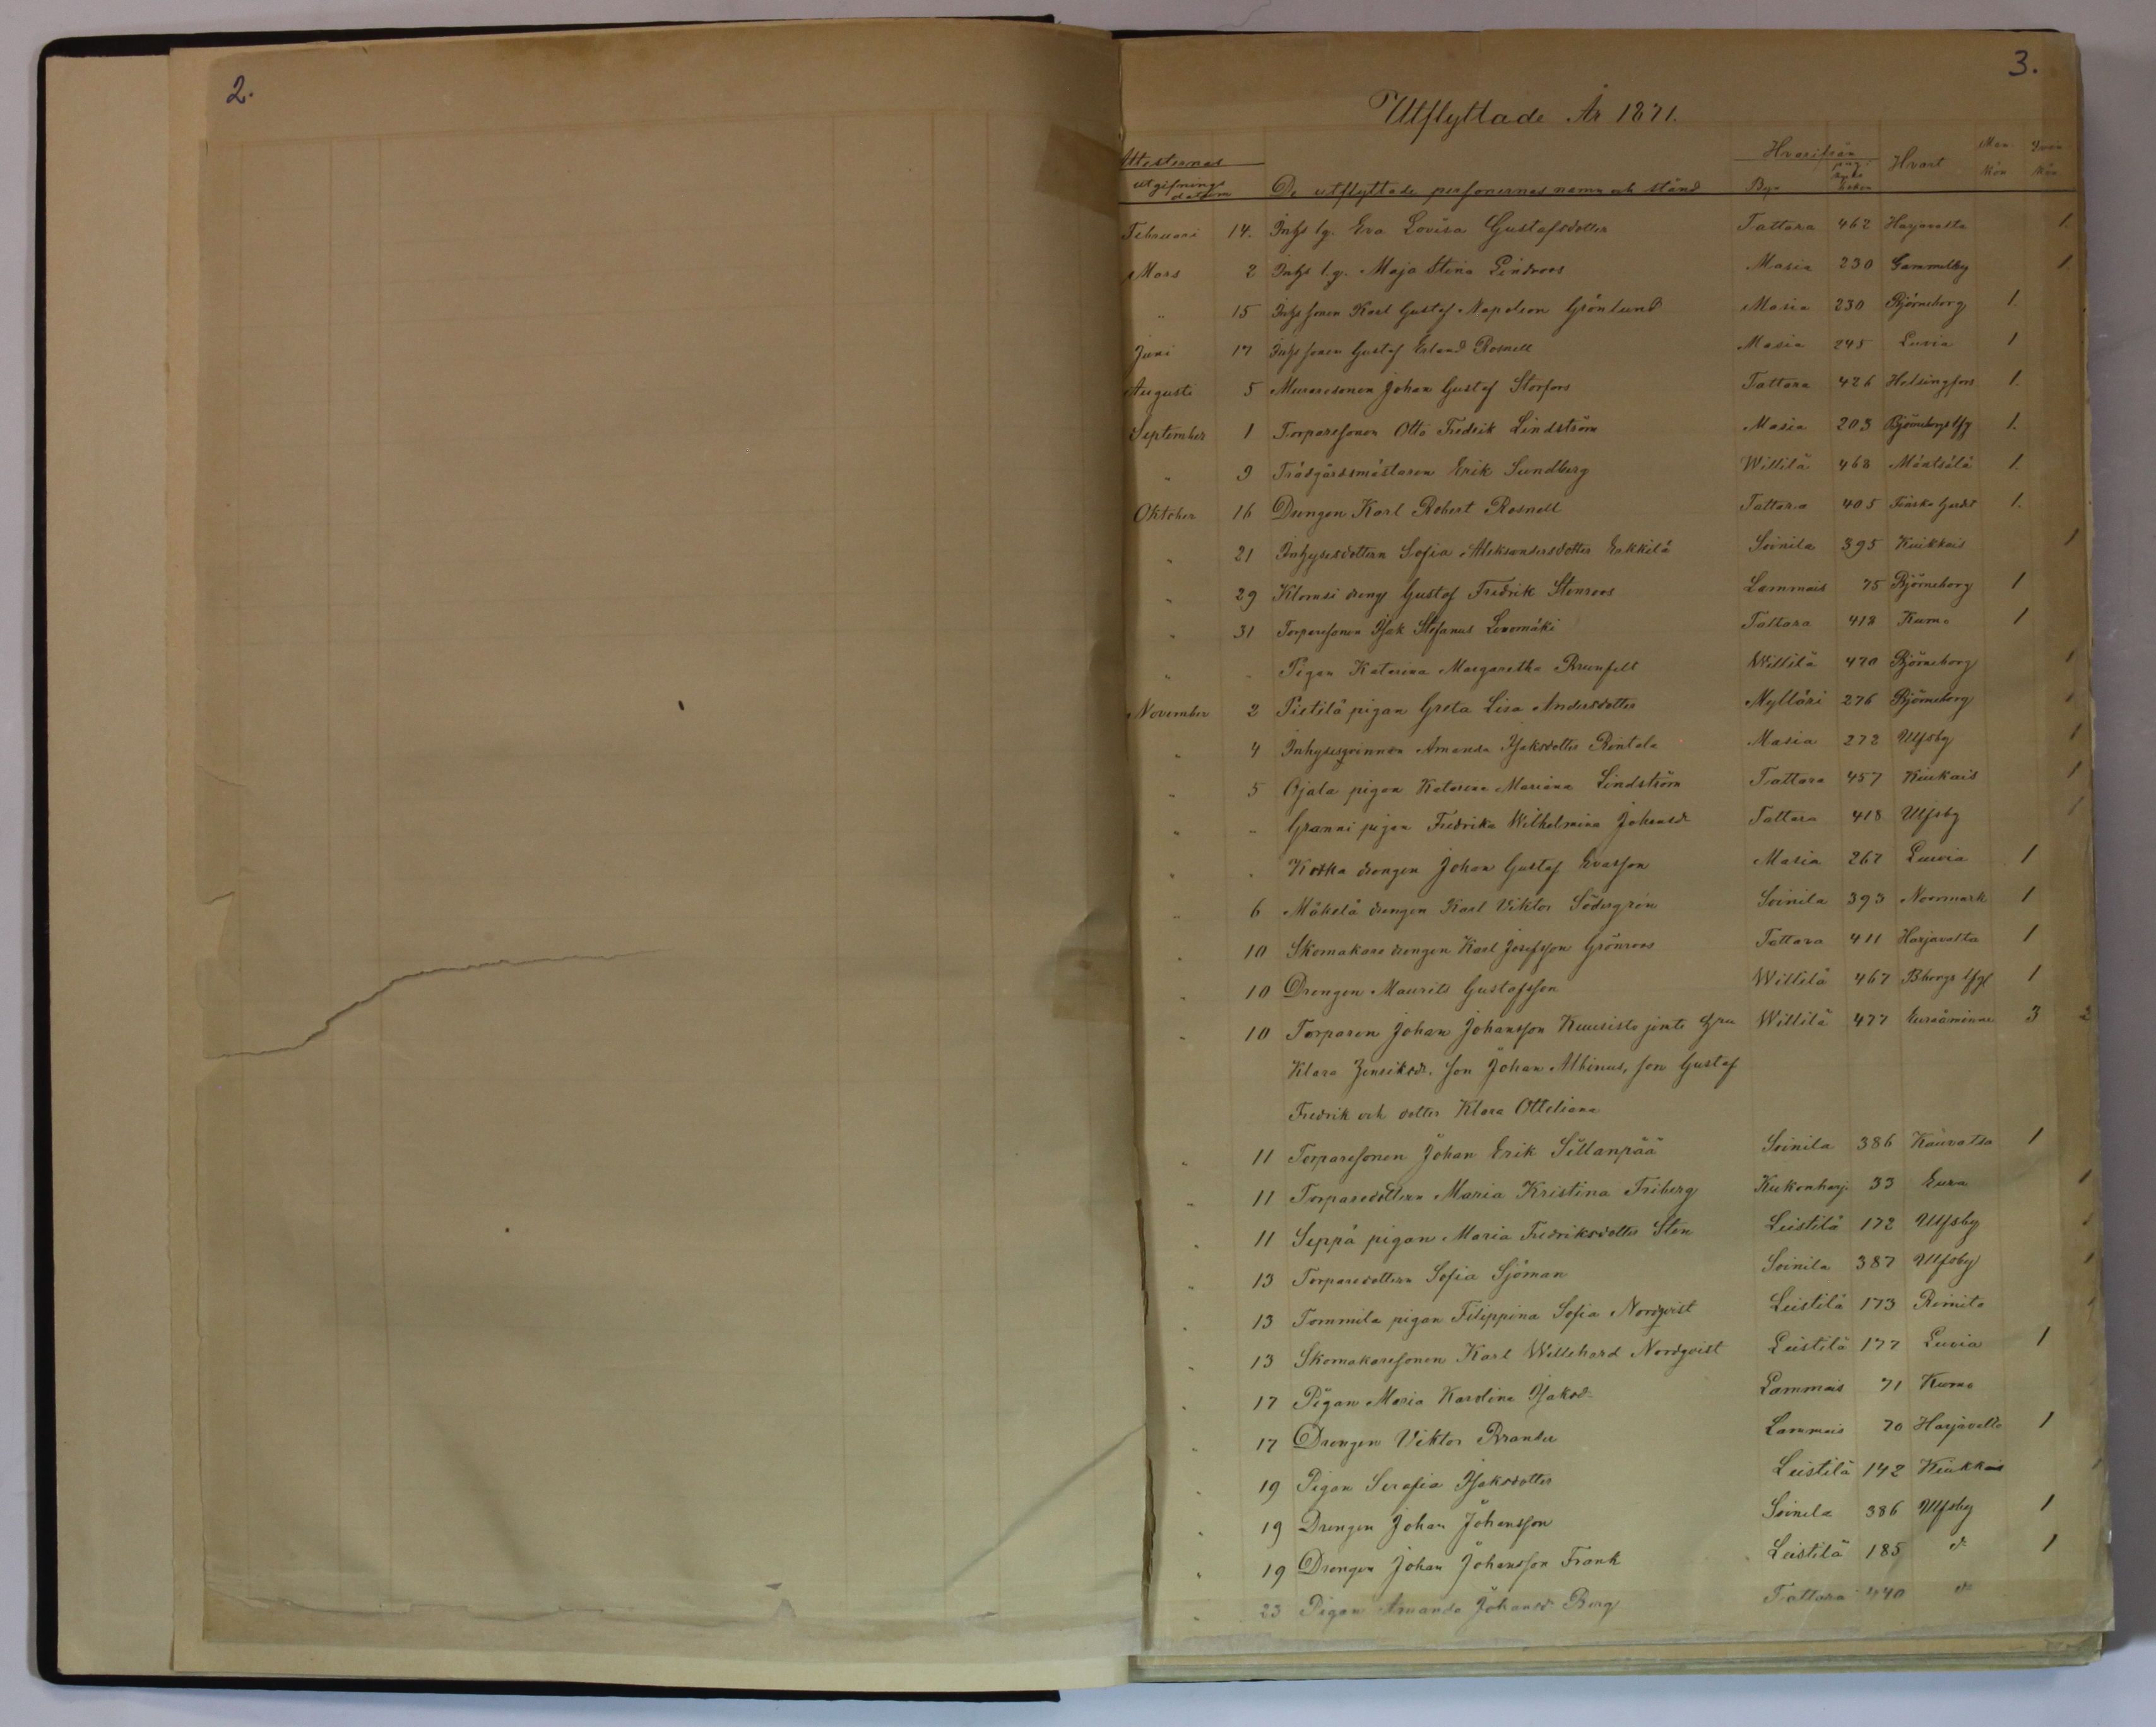 2.
3.
Utflyttade År 1871.
Attesternas Hvarifrån Hvart Man kön Qvin kön
utgifnings datum De utflyttade personernas namn och stånd By
Februari 14. Inhs lg. Eva Lovisa Gustafsdotter Tattara 462 Harjavalta 1.
Mars 2 Inhs l.g. Maja Stina Lindroos Masia 230 Gammelby 1.
" 15 Inhs sonen Karl Gustaf Napoleon Grönlund Masia 230 Björneborg 1.
Juni 17 Inhs sonen Gustaf Erland Rosnell Masia 245 Luvia 1
Augusti 5 Muraresonen Johan Gustaf Storfors Tattara 426 Helsingfors 1.
September 1 Torparesonen Otto Fredrik Lindström Masia 203 Björneborgs lfg 1.
" 9 Trädgårdsmästaren Erik Sundberg Willilä 468 Mäntsälä 1.
Oktober 16 Drengen Karl Robert Rosnell Tattara 405 Finska Gardet 1.
" 21 Inhysesdottern Sofia Aleksandersdotter Erkkilä Soinila 395 Kiukkais 1
" 29 Klomsi dreng Gustaf Fredrik Stenroos Lammais 75 Björneborg 1
" 31 Torparesonen Isak Stefanus Levomäki Tattara 418 Kumo 1
" " Pigan Katarina Margaretha Brunfelt Willilä 470 Björneborg 1
November 2 Pietilä pigan Greta Lisa Andersdotter Mylläri 276 Björneborg 1
" 4 Inhysesqvinnan Amanda Isaksdotter Rintala Masia 272 Ulfsby 1
" 5 Ojala pigan Katarina Mariana Lindström Tattara 457 Kiukais 1
" " Granni pigan Fredrika Wilhelmina Johansdr Tattara 418 Ulfsby 1
" " Kotka drengen Johan Gustaf Evasson Masia 267 Luvia 1
" 6 Mäkelä drengen Karl Viktor Södergrén Soinila 393 Norrmark 1
" 10 Skomakare drengen Karl Josefsson Grönroos Tattara 411 Harjavalta 1
" 10 Drengen Maurits Gustafsson Willilä 467 Bborgs lfg 1
" 10 Torparen Johan Johansson Kuusisto jemte hru Willilä 477 Euraåminne 3 2
Klara Henriksdr. son Johan Albinus, son Gustaf
Fredrik och dotter Klara Otteliana
" 11 Torparesonen Johan Erik Sillanpää Soinila 386 Kauvatsa 1
" 11 Torparedottern Maria Kristina Friberg Kukonharj. 33 Eura 1
" 11 Seppä pigan Maria Fredriksdotter Sten Leistilä 172 Ulfsby 1
" 13 Torparedottern Sofia Sjöman Soinila 387 Ulfsby 1
" 13 Tommila pigan Filippina Sofia Nordqvist Leistilä 173 Rimito 1
" 13 Skomakaresonen Karl Willehard Nordqvist Leistilä 177 Luvia 1
" 17 Pigan Maria Karolina Isaksdr Lammais 71 Kumo
" 17 Drengen Viktor Brander Lammais 70 Harjavalta 1
" 19 Pigan Serafia Isaksdotter Leistilä 142 Kiukkais 1
" 19 Drengen Johan Johansson Soinila 386 Ulfsby 1
" 19 Drengen Johan Johansson Frank Leistilä 185 d:o 1
" 23 Pigan Amanda Johansdr Berg Tattara 440 d:o